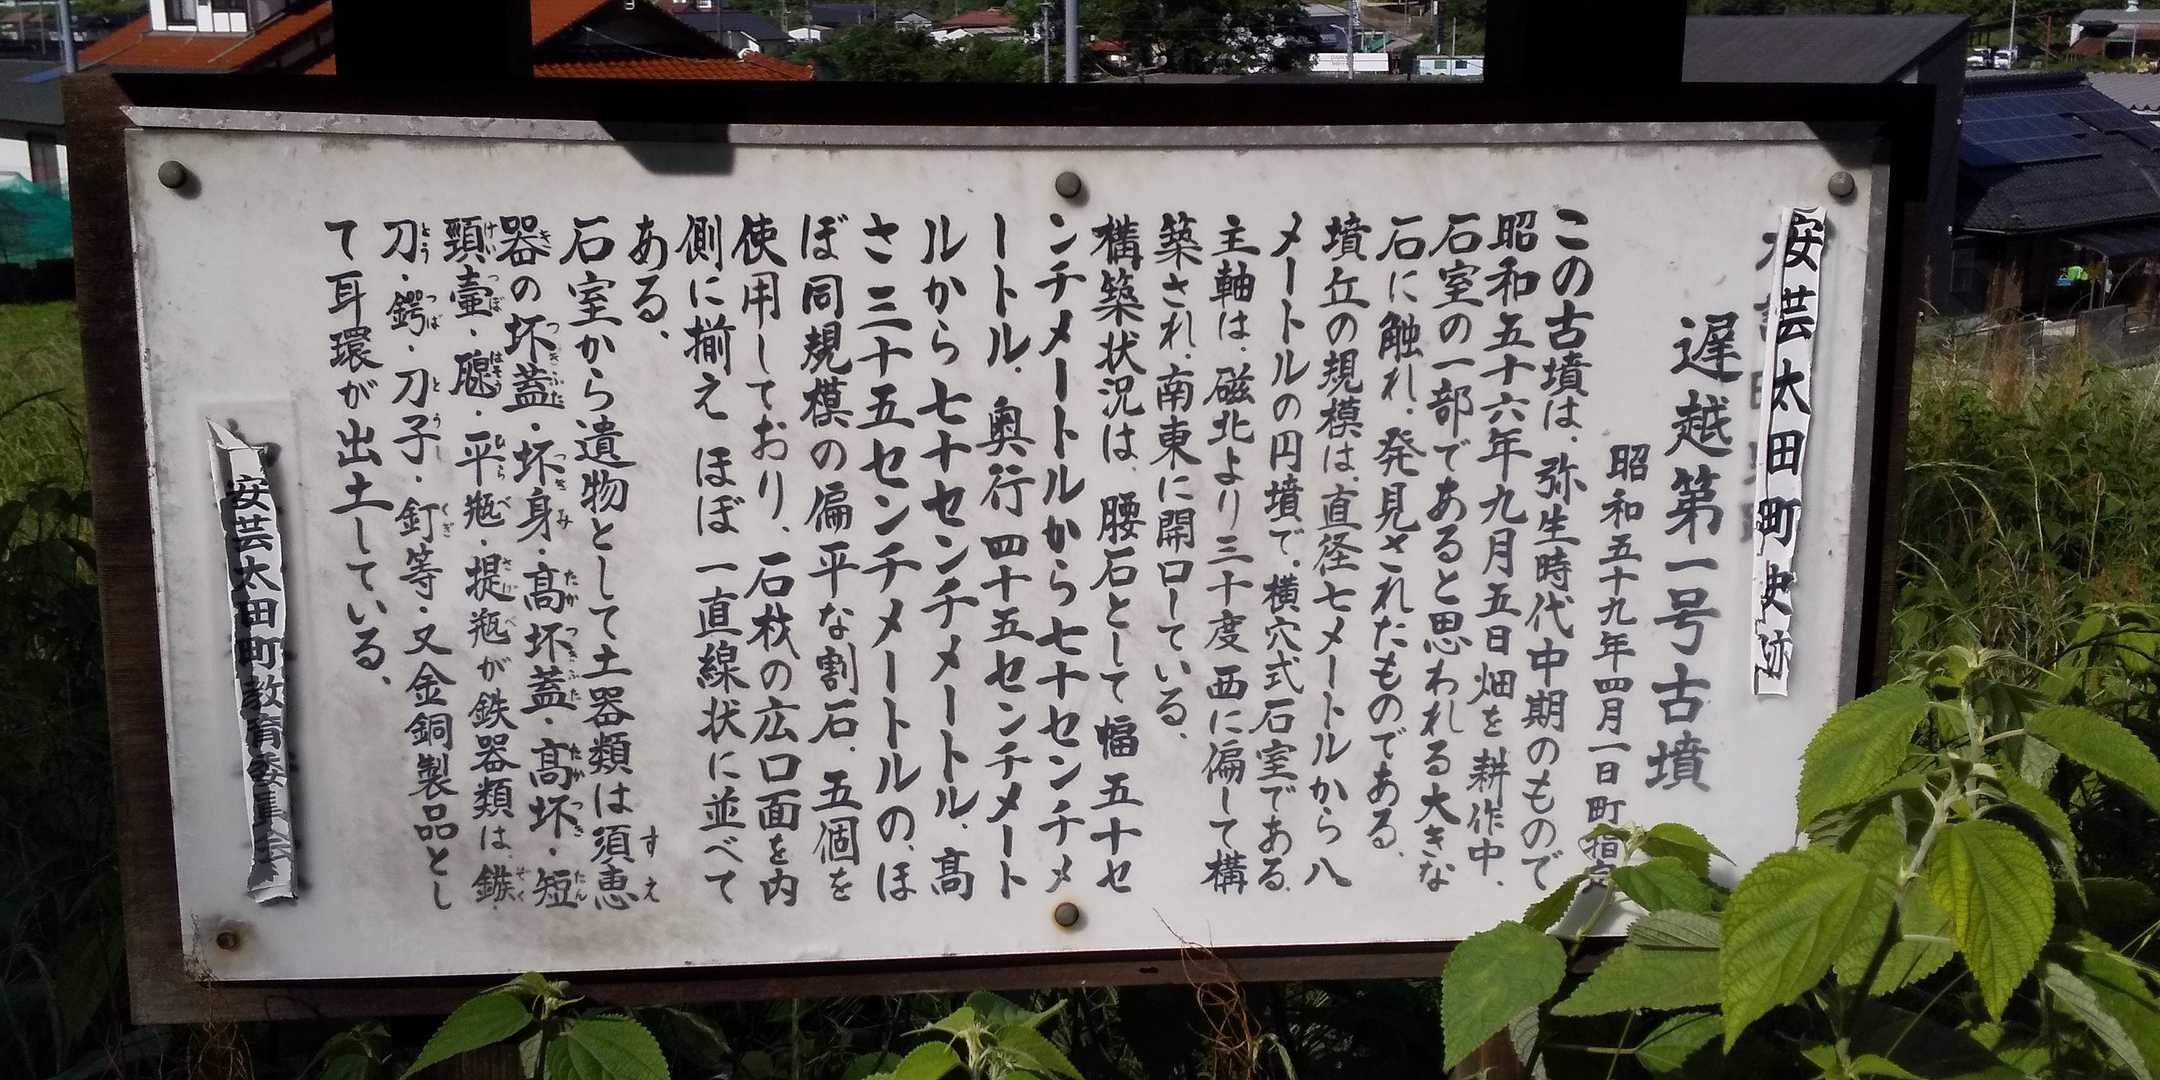 安芸太田町史跡
遅越第一号古墳
昭和五十九年四月一日町指定
この古墳は、弥生時代中期のもので
昭和五十六年九月五日畑を耕作中、
石室の一部であると思われる大きな
石に触れ、発見されたものである、
墳丘の規模は、直径七メートルから八
メートルの円墳で、横穴式石室である、
主軸は、磁北より三十度西に偏して構
築され、南東に開口している、
構築状況は、腰石として幅五十セ
ンチメートルから七十センチメ
ートル、奥行四十五センチメート
ルから七十センチメートル、高
さ三十五センチメートルの、ほ
ぼ同規模の偏平な割石、五個を
使用しており、石材の広口面を内
側に揃えほぼ一直線状に並べて
ある、
石室から遺物として土器類は須恵
器の坏蓋・坏身・高坏蓋・高坏・短
頸壷・𤭯・平瓶・提瓶が鉄器類は、鏃・
刀・鍔・刀子・釘等・又金銅製品とし
て耳環が出土している、
安芸太田町教育委員会